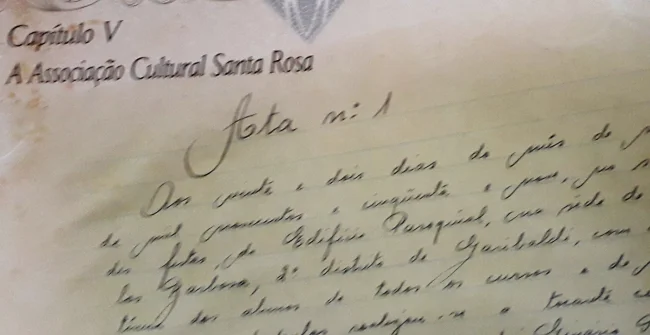 Capítulo V
A Associação Cultural Santa Rosa
Ata nº 1
Aos vinte e dois dias do mês de
de mil novecentos e cinqüenta e nove, no
des festas, do Edifício Paroquial, na séde do
los Barbosa, 2º distrito de Garibaldi, com
dos alunos de todos os cursos e do
realizou-se a tocante